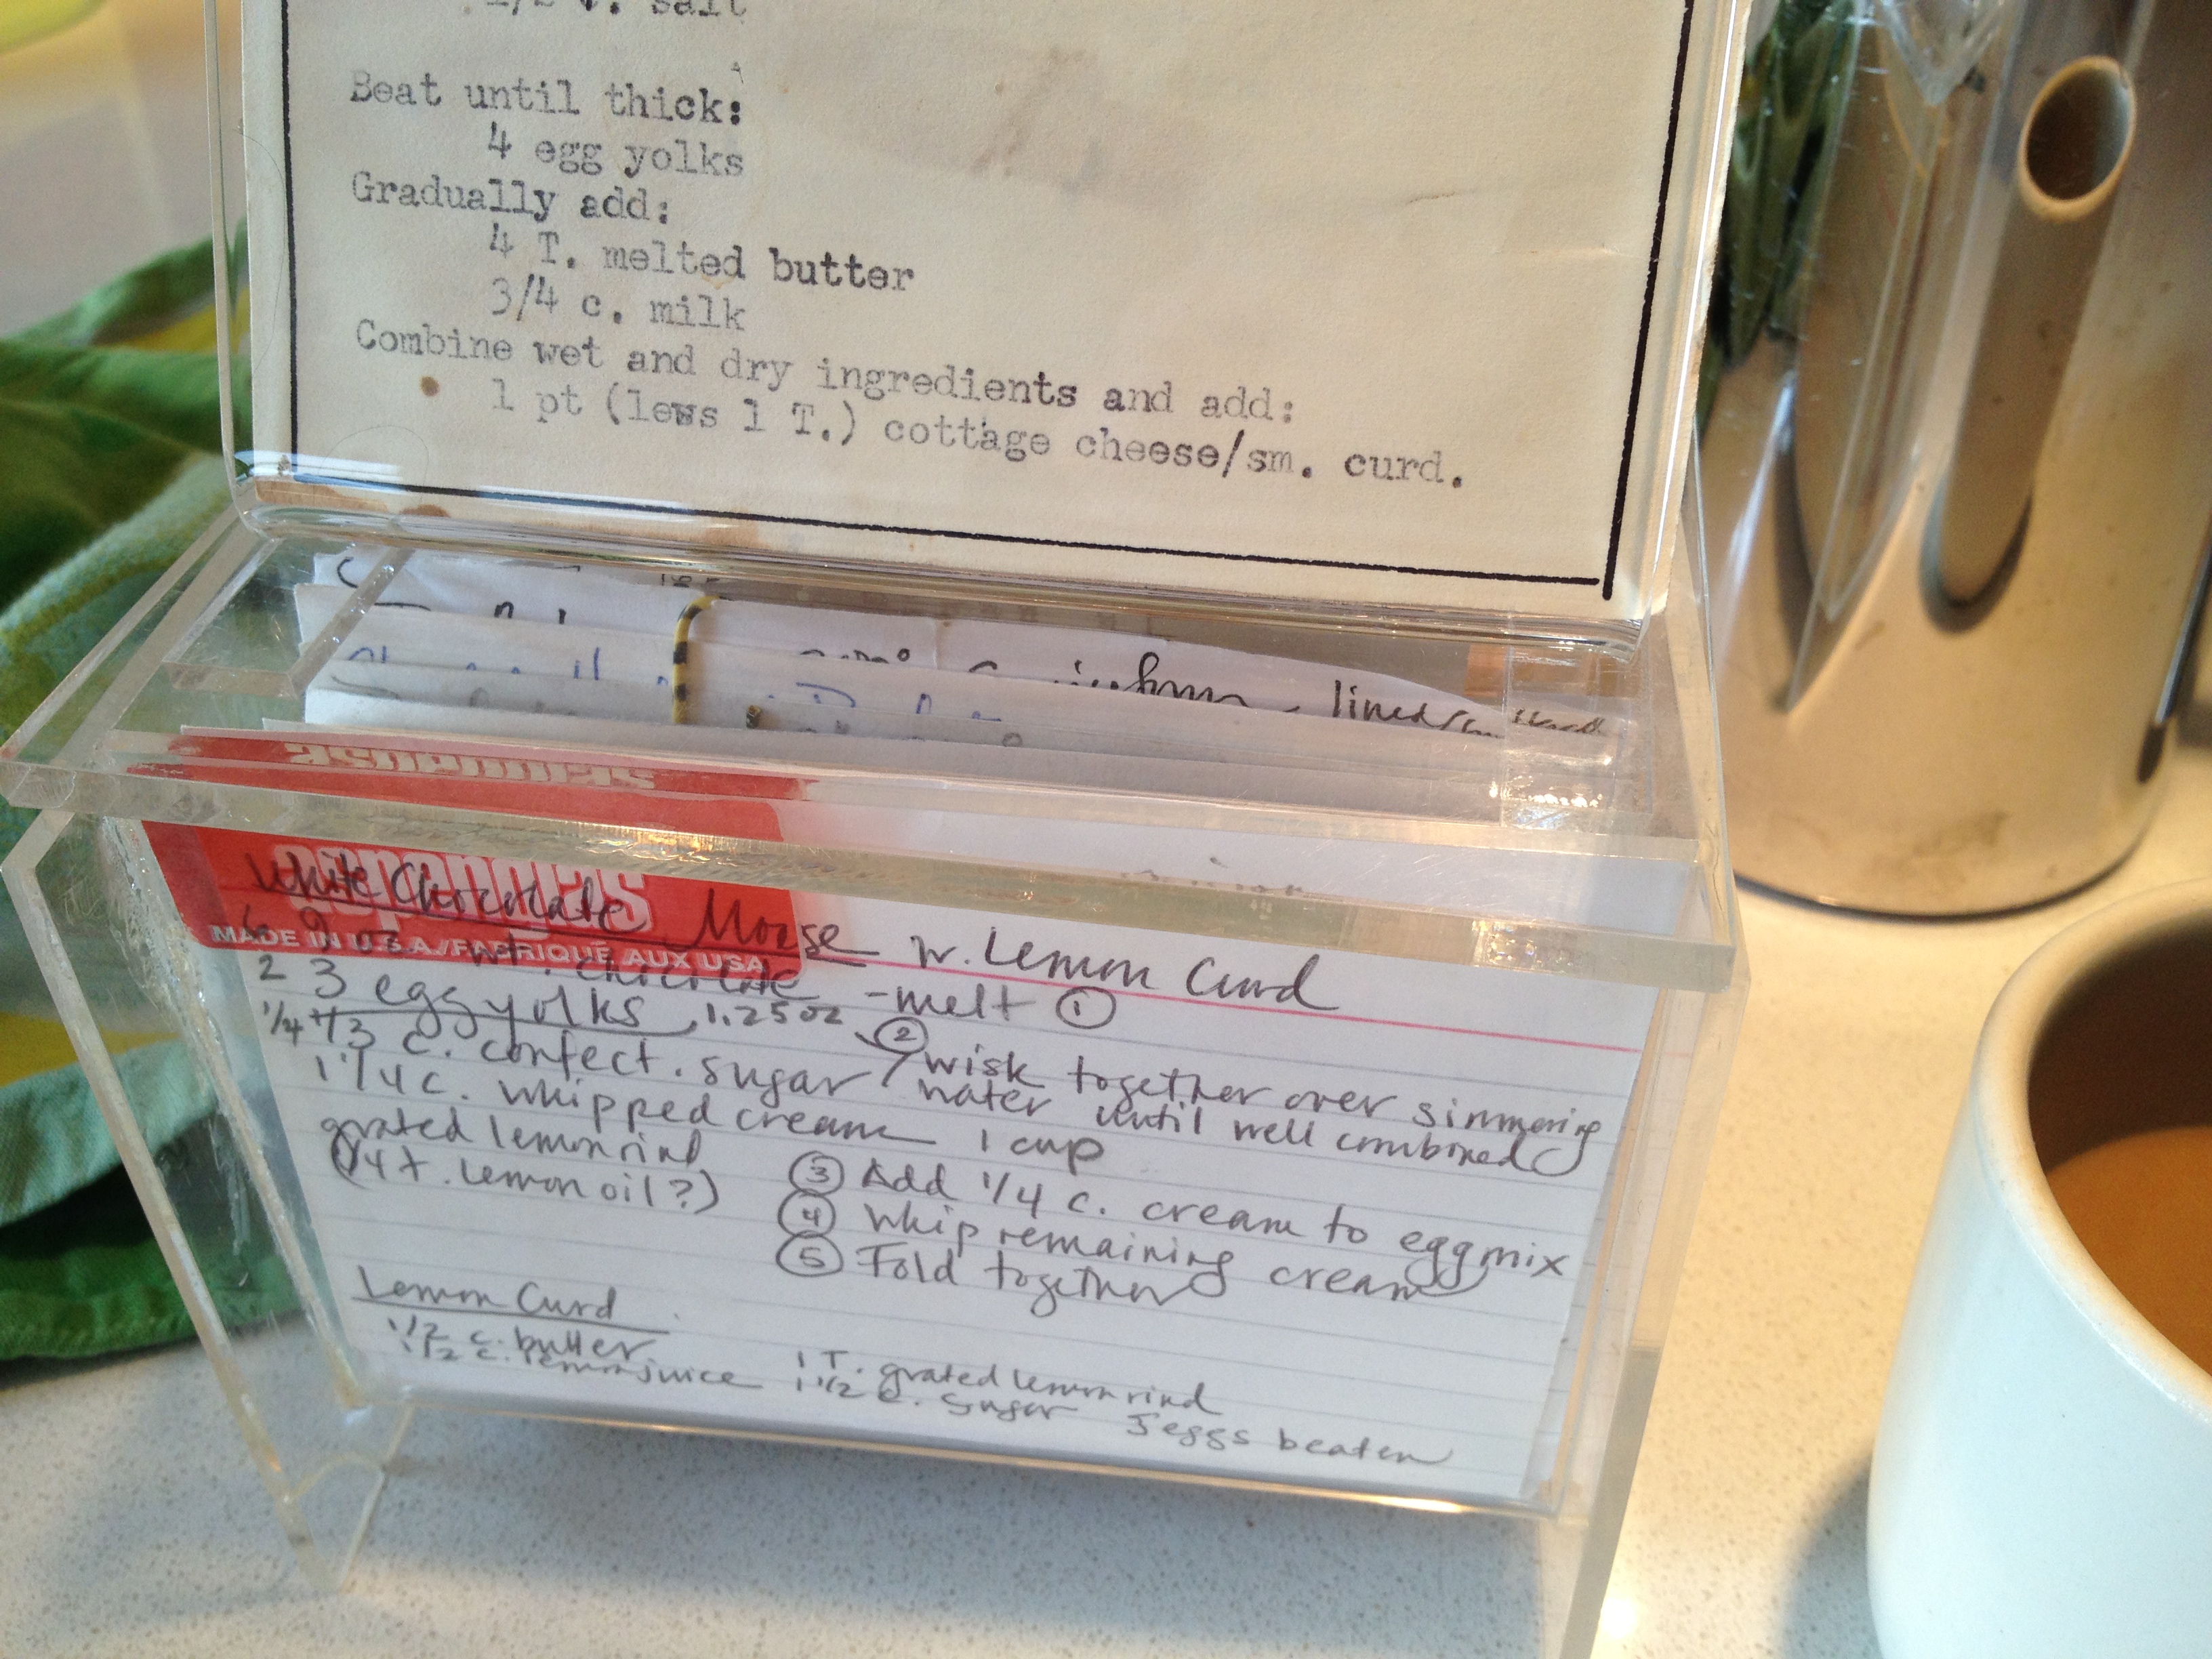 1/2 t. salt
Beat until thick:
4 egg yolks
Gradually add:
4 T. melted butter
3/4 c. milk
Combine wet and dry ingredients and add:
1 pt (lews 1 T.) cottage cheese/sm. curd.
lined
aspenmas
aspenmas
MADE IN U.S.A./FABRIQUÉ AUX USA
White Chocolate Moose w. Lemon Curd
6 9 oz wt. chocolate - melt ①
2 3 egg yolks , 1.25 oz
1/4 1/3 c. confect. sugar ② wisk together over simmering
water until well combined
1 1/4 c. whipped cream 1 cup
grated lemon rind
(1/4 t. lemon oil?)
③ Add 1/4 c. cream to egg mix
④ Whip remaining cream
⑤ Fold together
Lemon Curd
1/2 c. butter
1/2 c. lemon juice
1 T. grated lemon rind
1 1/2 c. sugar 5 eggs beaten